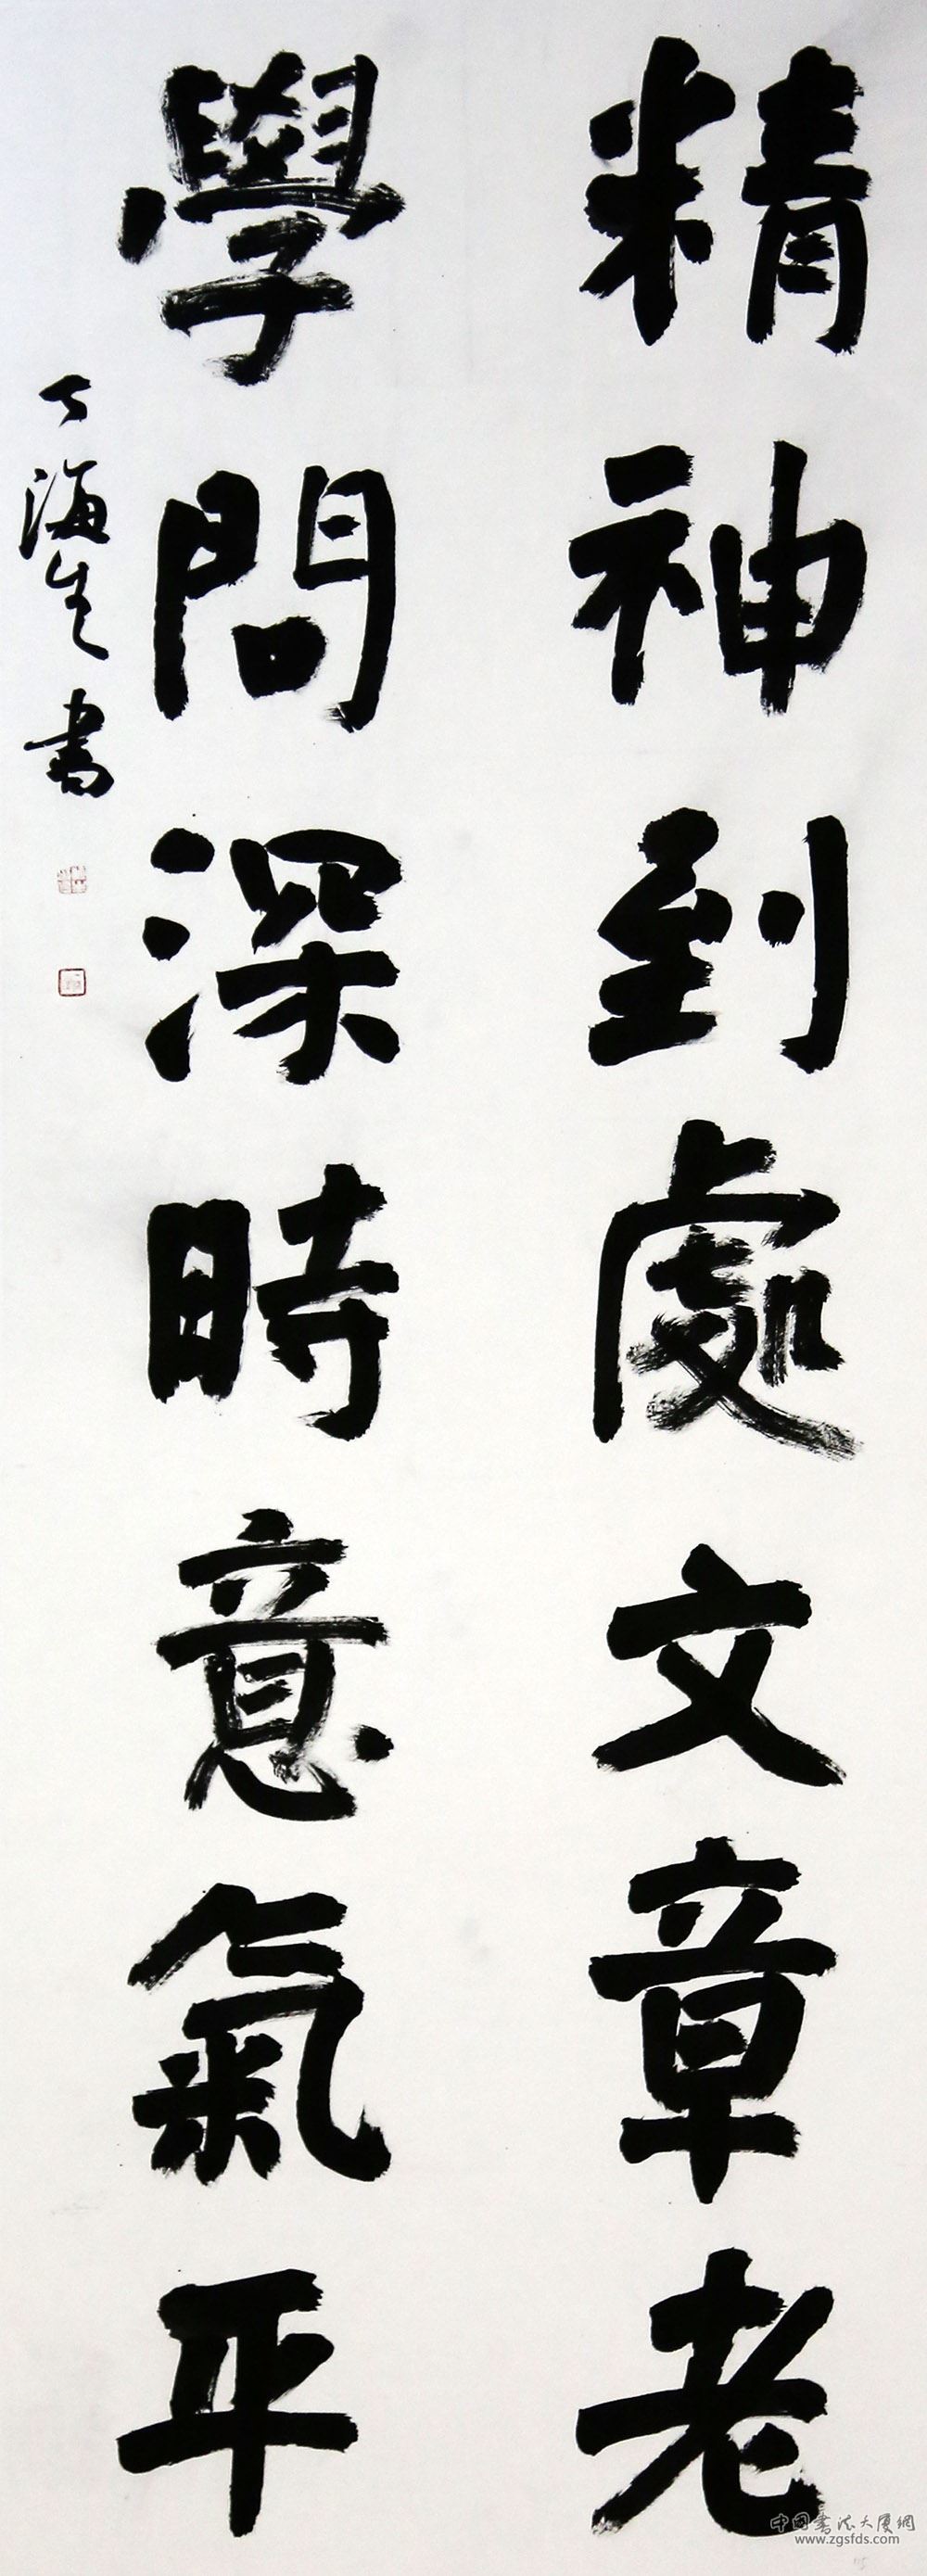 精神到處文章老
學問深時意氣平
丁海生書
中國書法大廈網
www.zgsfds.com